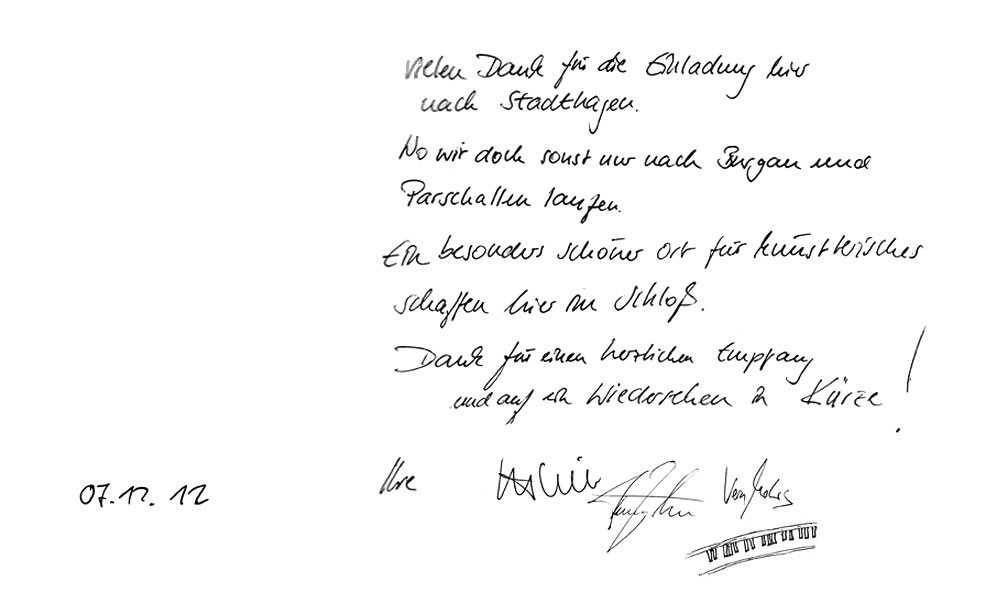 Vielen Dank für die Einladung hier
nach Stadthagen.
Wo wir doch sonst nur nach Burgau und
Parschallen laufen.
Ein besonders schöner Ort für künstlerisches
schaffen hier im Schloß.
Dank für einen herzlichen Empfang
und auf ein Wiedersehen in Kürze!
07.12.12 Ihre